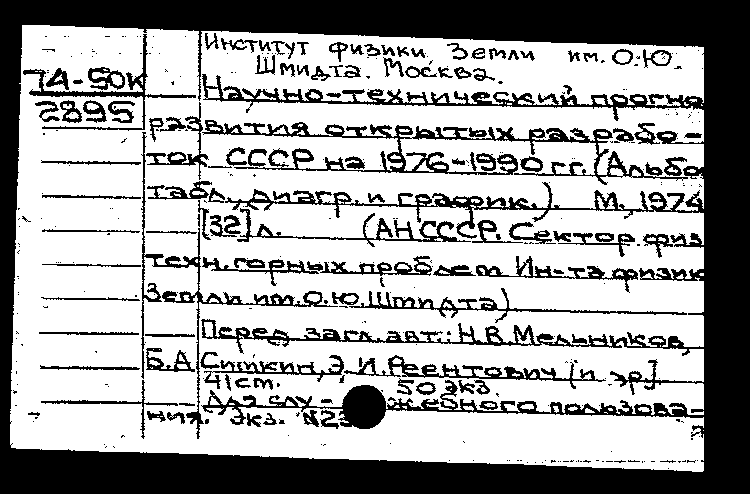 Институт физики Земли им. О.Ю.
Шмидта. Москва.
74-50К
2895
Научно-технический прогно
развития открытых разрабо-
ток СССР на 1976-1990 гг. (Альбо
табл., диагр. и график.). М., 1974
[32] л. (АН СССР. Сектор физ
техн. горных проблем Ин-та физик
Земли им. О.Ю. Шмидта)
Перед загл. авт.: Н.В. Мельников,
Б.А. Симкин, Э.И. Реентович [и др.]
41 ст. 50 экз.
Для слу- жебного пользова-
ния. Экз. №23